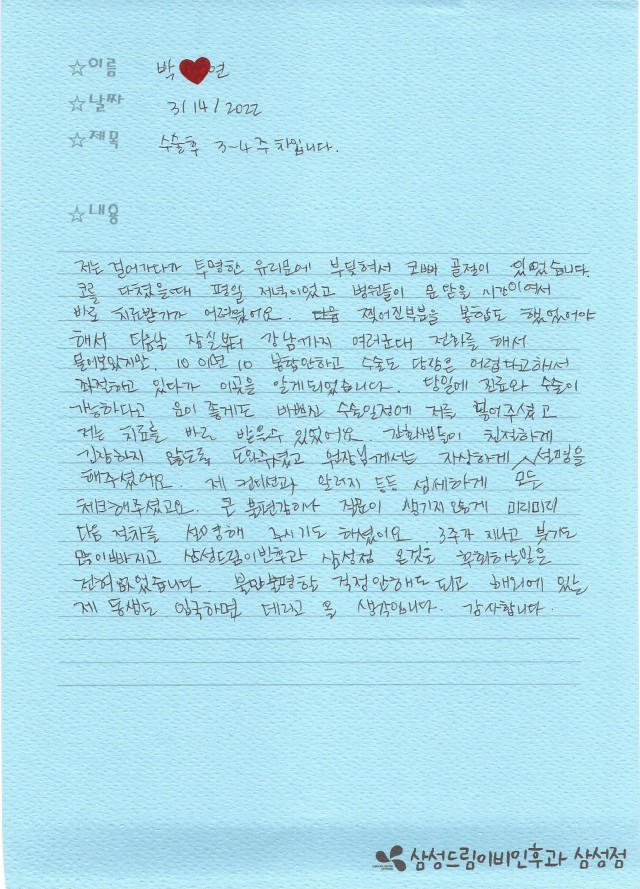 ☆이름 박 연
☆날짜 3/14/2022
☆제목 수술후 3-4주차입니다.
☆내용
저는 걸어가다가 투명한 유리문에 부딪혀서 코뼈 골절이 있었습니다.
코를 다쳤을때 평일 저녁이었고 병원들이 문 닫을 시간이여서
바로 치료받기가 어려웠어요. 다음 찢어진부분을 봉합도 했었어야
해서 다음날 잠실부터 강남까지 여러군대 전화를 해서
물어보았지만, 10 이면 10 봉합안하고 수술도 당장은 어렵다고해서
좌절하고 있다가 이곳을 알게되었습니다. 당일에 진료와 수술이
가능하다고 운이 좋게도 바쁘신 수술일정에 저를 넣어주셨고
저는 치료를 바로 받을수 있었어요 간호사분들이 친절하게
긴장하지 않도록 도와주셨고 원장님께서는 자상하게 설명을
해주셨어요. 제 컨디션과 알러지 등등 섬세하게 모든
체크해주셨고요. 큰 불편감이나 질문이 생기지 않게 미리미리
다음 절차를 설명해 주시기도 하셨어요. 3주가 지나고 붓기도
많이빠지고 삼성드림이빈후과 삼성점 온것을 후회하는일은
전혀 없었습니다. 불만불평할 걱정안해도 되고 해외에 있는
제 동생도 입국하면 데리고 올 생각입니다. 감사합니다.
삼성드림이비인후과 삼성점